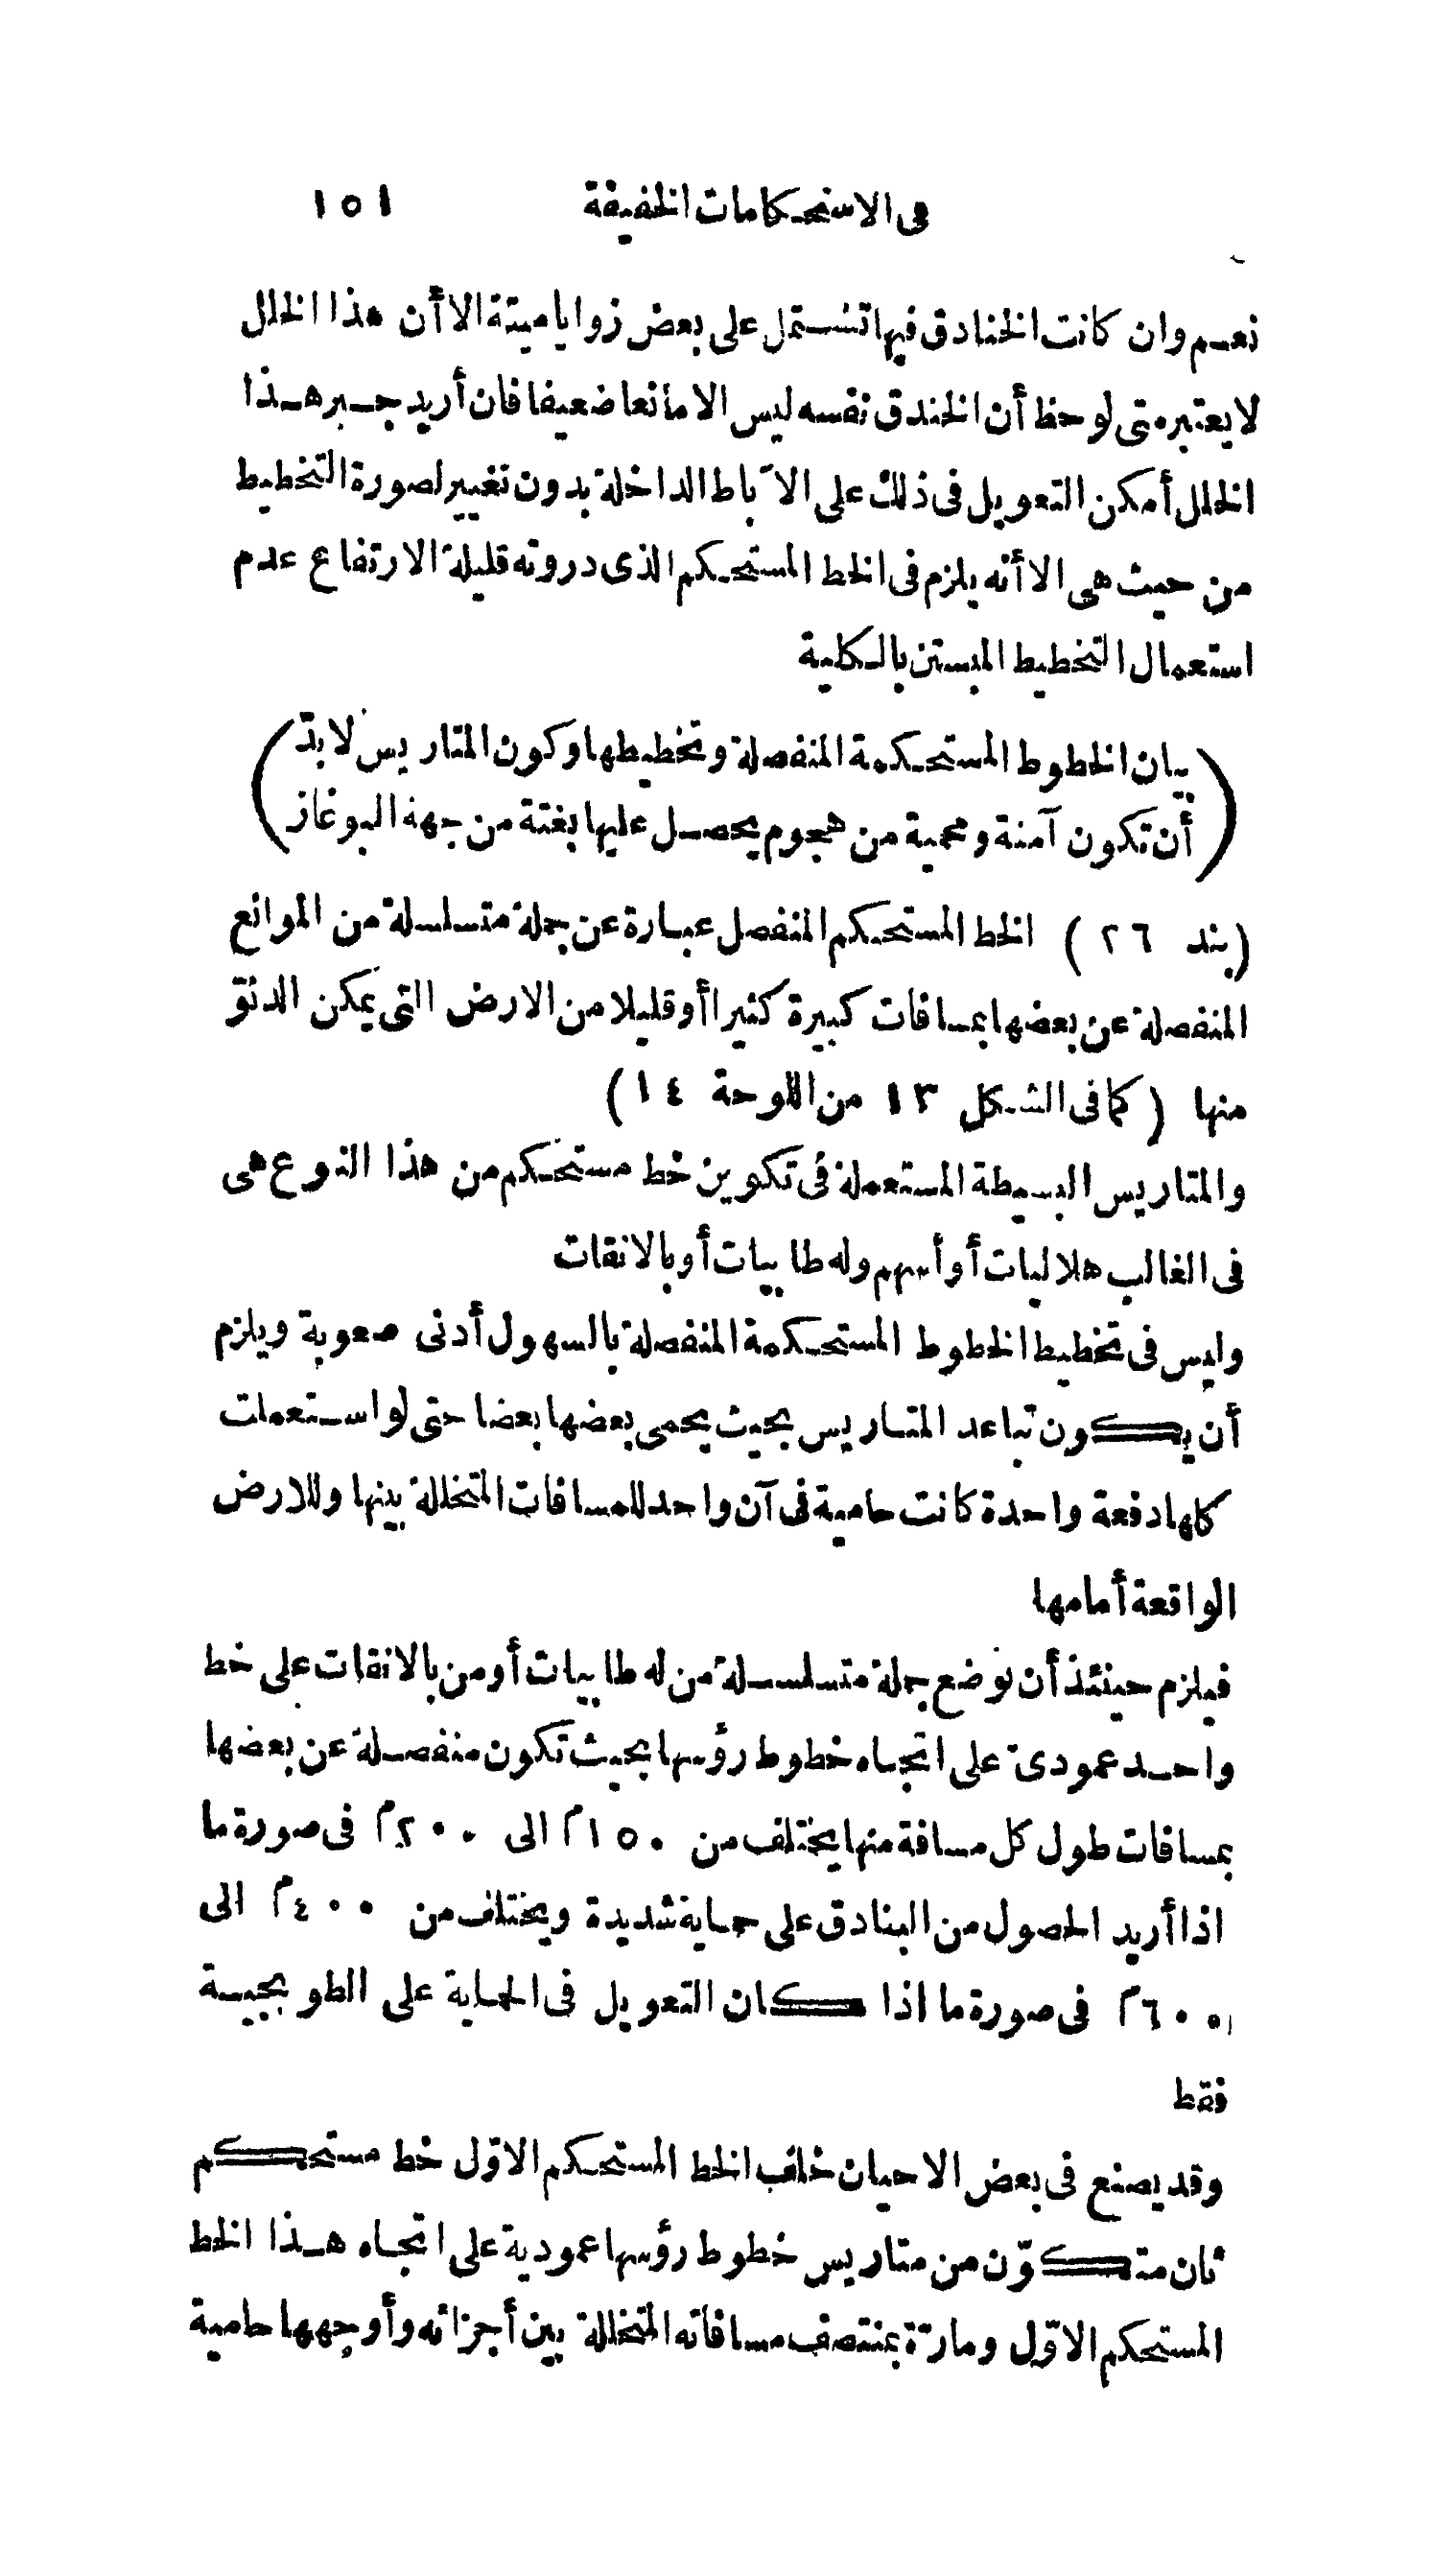 فى الاستحكامات الخفيفة ١٥١
نعم وان كانت الخنادق فيها تشتمل على بعض زوايا ميتة الا أن هذا الخلل
لا يعتبر متى لوحظ أن الخندق نفسه ليس الا مانعا ضعيفا فان أريد جبر هذا
الخلل أمكن التعويل فى ذلك على الآباط الداخلة بدون تغيير لصورة التخطيط
من حيث هى الا أنه يلزم فى الخط المستحكم الذى دروته قليلة الارتفاع عدم
استعمال التخطيط المبستن بالكلية
(بيان الخطوط المستحكمة المنفصلة وتخطيطها وكون المتاريس لا بدّ
أن تكون آمنة ومحمية من هجوم يحصل عليها بغتة من جهة البوغاز)
(بند ٢٦) الخط المستحكم المنفصل عبارة عن جملة متسلسلة من الموانع
المنفصلة عن بعضها بمسافات كبيرة كثيرا أو قليلا من الارض التى يمكن الدنوّ
منها (كما فى الشكل ١٣ من اللوحة ١٤)
والمتاريس البسيطة المستعملة فى تكوين خط مستحكم من هذا النوع هى
فى الغالب هلاليات أو أسهم وله طابيات أو بالانقات
وليس فى تخطيط الخطوط المستحكمة المنفصلة بالسهول أدنى صعوبة ويلزم
أن يكون تباعد المتاريس بحيث يحمى بعضها بعضا حتى لو استعملت
كلها دفعة واحدة كانت حامية فى آن واحد للمسافات المتخللة بينها وللارض
الواقعة أمامها
فيلزم حينئذ أن توضع جملة متسلسلة من له طابيات أو من بالانقات على خط
واحد عمودىّ على اتجاه خطوط رؤسها بحيث تكون منفصلة عن بعضها
بمسافات طول كل مسافة منها يختلف من ١٥٠م الى ٢٠٠م فى صورة ما
اذا أريد الحصول من البنادق على حماية شديدة ويختلف من ٤٠٠م الى
٦٠٠م فى صورة ما اذا كان التعويل فى الحماية على الطوبجية
فقط
وقد يصنع فى بعض الاحيان خلف الخط المستحكم الاوّل خط مستحكم
ثان متكوّن من متاريس خطوط رؤسها عمودية على اتجاه هذا الخط
المستحكم الاوّل ومارّة بمنتصف مسافاته المتخللة بين أجزائه وأوجهها حامية